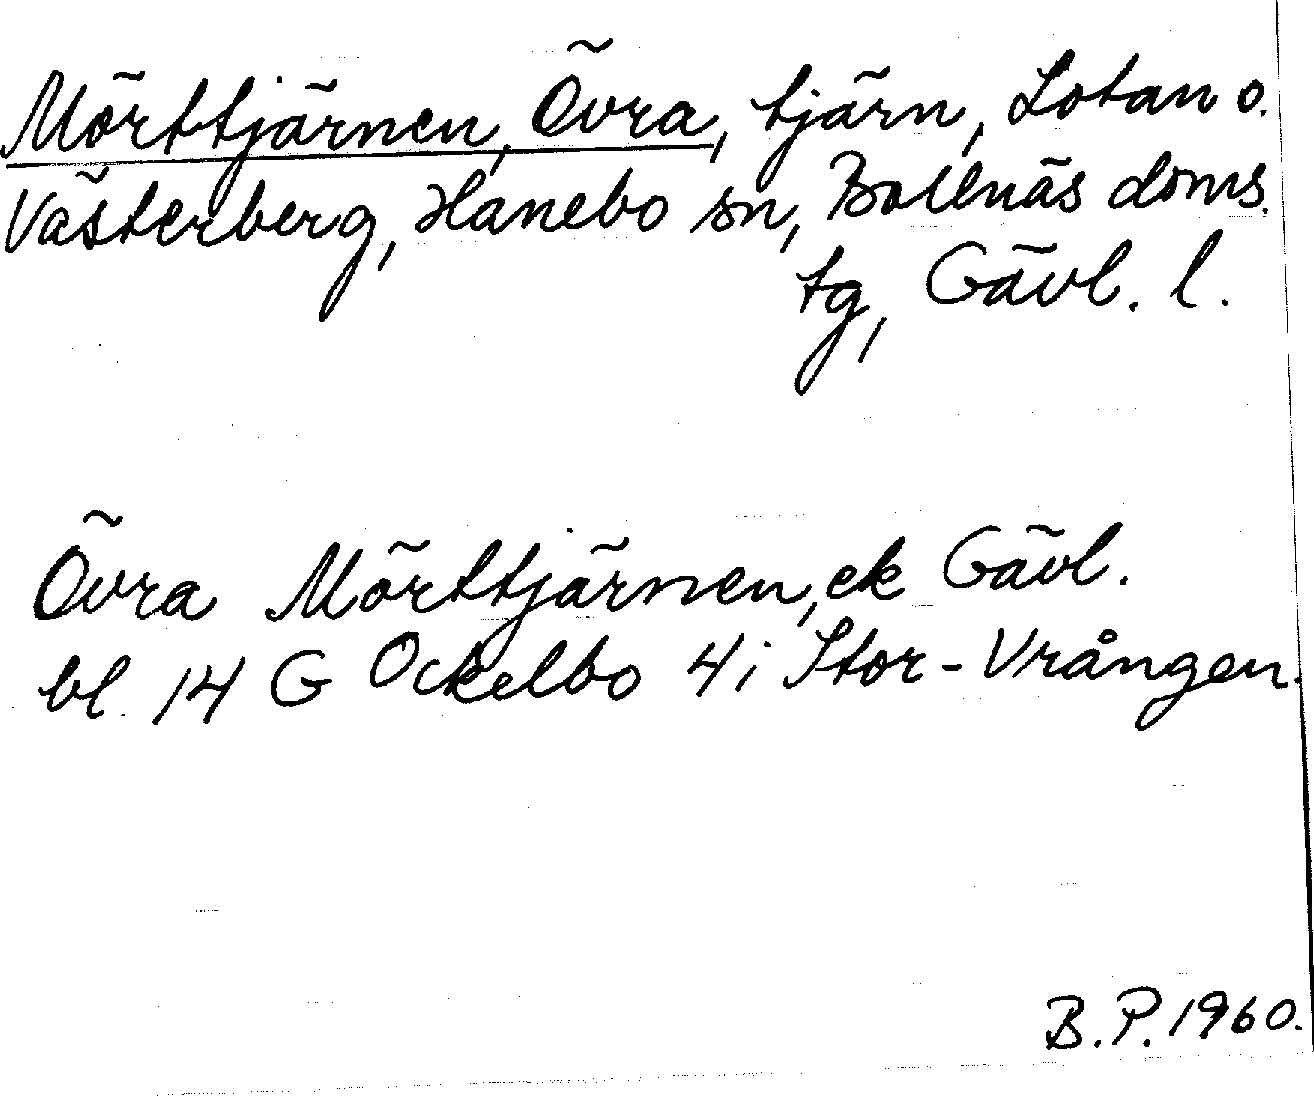 Mörttjärnen, Övra, tjärn, Lotan o.
Västerberg, Hanebo sn, Bollnäs doms.
tg, Gävl. l.
Övra Mörttjärnen, ek Gävl.
bl. 14 G Ockelbo 4 i Stor-Vrången.
B.P. 1960.